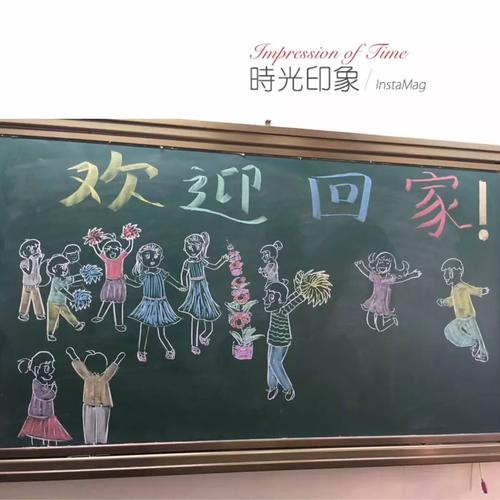 Impression of Time
時光印象 / InstaMag
欢迎回家!